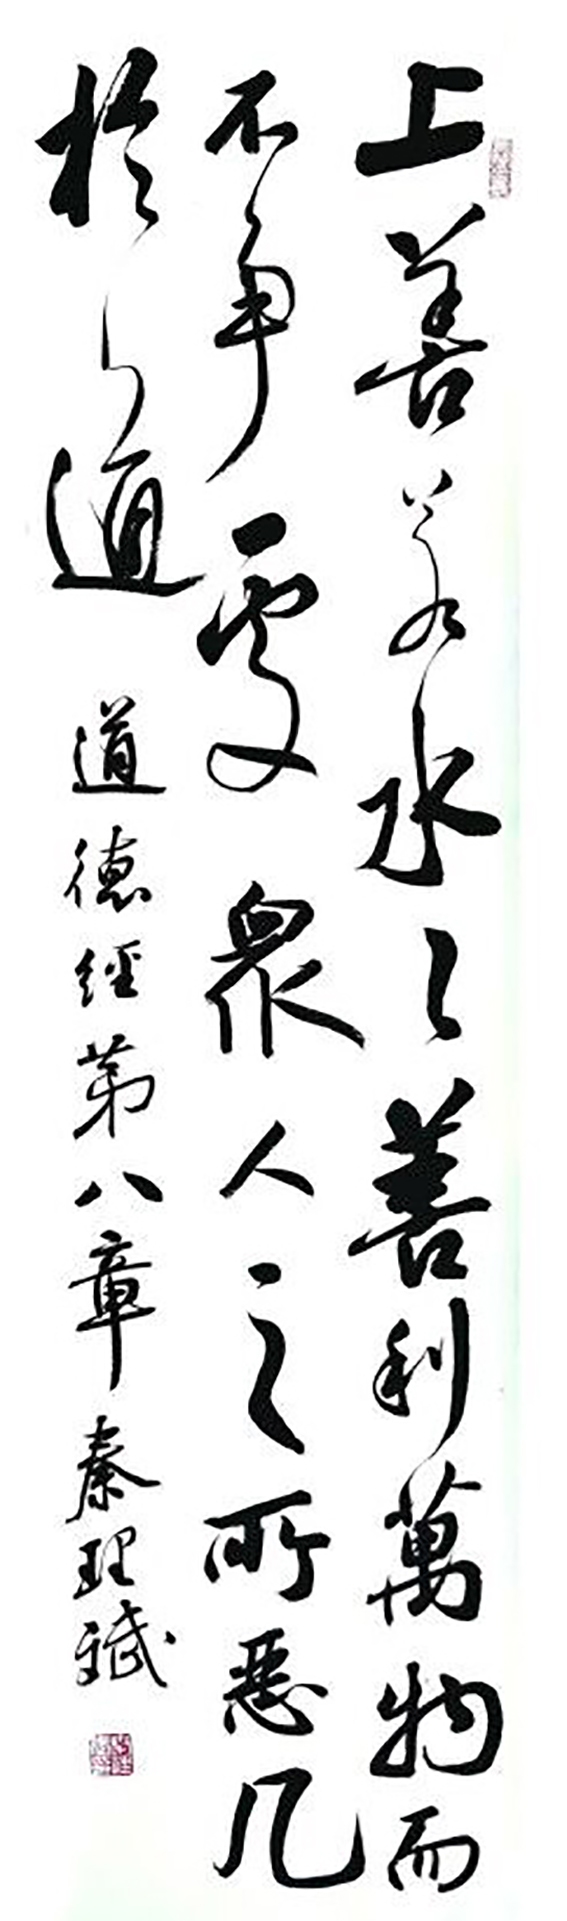 上善若水々善利萬物而
不争處衆人之所惡几
於道 道德經第八章 秦理斌